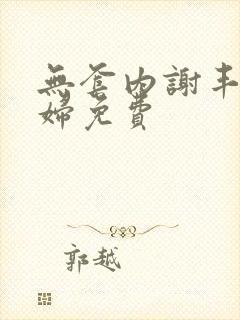 無套內謝丰
婦免費
郭越